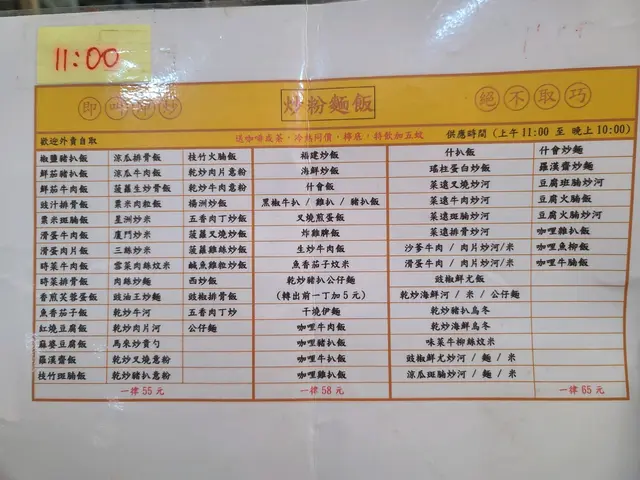 11:00
即叫即炒
炒粉麵飯
絕不取巧
歡迎外賣自取
送咖啡或茶，冷熱同價，轉底，特飲加五蚊
供應時間 (上午 11:00 至 晚上 10:00)
椒鹽豬扒飯 涼瓜排骨飯 枝竹火腩飯 福建炒飯 什扒飯 什會炒麵
鮮茄豬扒飯 涼瓜牛肉飯 乾炒肉片意粉 海鮮炒飯 瑤柱蛋白炒飯 羅漢齋炒麵
鮮茄牛肉飯 菠蘿生炒骨飯 乾炒牛肉意粉 什會飯 菜遠叉燒炒河 豆腐班腩炒河
豉汁排骨飯 粟米肉粒飯 楊洲炒飯 黑椒牛扒 / 雞扒 / 豬扒飯 菜遠牛肉炒河 豆腐火腩飯
粟米斑腩飯 星洲炒米 五香肉丁炒飯 叉燒煎蛋飯 菜遠斑腩炒河 豆腐火腩炒河
滑蛋牛肉飯 廈門炒米 菠蘿叉燒炒飯 炸雞脾飯 菜遠排骨炒河 咖喱雞扒飯
滑蛋肉片飯 三絲炒米 菠蘿雞絲炒飯 生炒牛肉飯 沙爹牛肉 / 肉片炒河/米 咖喱魚柳飯
時菜牛肉飯 雪菜肉絲炆米 鹹魚雞粒炒飯 魚香茄子炆米 滑蛋牛肉 / 肉片炒河/米 咖喱牛腩飯
時菜排骨飯 肉絲炒麵 西炒飯 乾炒豬扒公仔麵 豉椒鮮尤飯
香煎芙蓉蛋飯 豉油王炒麵 豉椒排骨飯 (轉出前一丁加 5 元) 乾炒海鮮河 / 米 / 公仔麵
魚香茄子飯 乾炒牛河 五香肉丁炒 干燒伊麵 乾炒豬扒烏冬
紅燒豆腐飯 乾炒肉片河 公仔麵 咖哩牛肉飯 乾炒海鮮烏冬
麻婆豆腐飯 馬來炒貴刁 咖哩豬扒飯 味菜牛柳絲炆米
羅漢齋飯 乾炒叉燒意粉 咖哩牛扒飯 豉椒鮮尤炒河 / 麵 / 米
枝竹斑腩飯 乾炒豬扒意粉 咖哩雞扒飯 涼瓜斑腩炒河 / 麵 / 米
一律 55 元 一律 58 元 一律 65 元